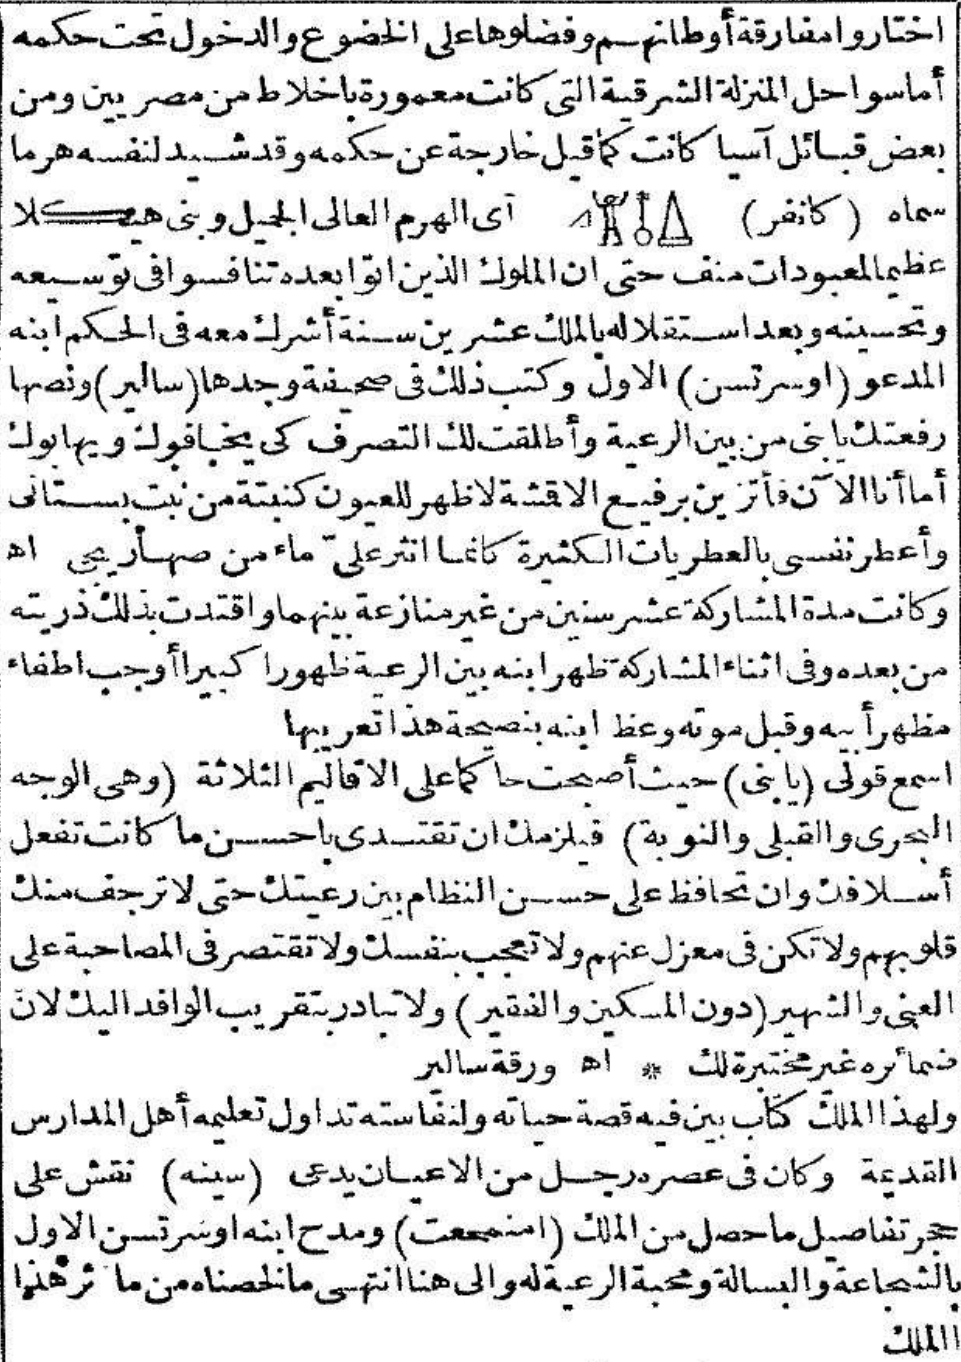 اختاروا مفارقة أوطانهم وفضلوها على الخضوع والدخول تحت حكمه
أما سواحل المنزلة الشرقية التي كانت معمورة باخلاط من مصريين ومن
بعض قبائل آسيا كانت كما قيل خارجة عن حكمه وقد شيد لنفسه هرما
سماه (كانفر) أى الهرم العالى الجميل وبنى هيكلا
عظيما لمعبودات منف حتى ان الملوك الذين اتوا بعده تنافسوا فى توسيعه
وتحسينه وبعد استقلاله بالملك عشرين سنة أشرك معه فى الحكم ابنه
المدعو (اوسرتسن) الاول وكتب ذلك فى صحيفة وجدها (سالير) ونصها
رفعتك يا بنى من بين الرعية وأطلقت لك التصرف كى يخافوك ويهابوك
أما أنا الآن فأتزين برفيع الاقشة لاظهر للعيون كنبتة من نبت بستانى
وأعطر نفسى بالعطريات الكثيرة كانما انثر علىّ ماء من صهاريجى اه
وكانت مدة المشاركة عشر سنين من غير منازعة بينهما واقتدت بذلك ذريته
من بعده وفى اثناء المشاركة ظهر ابنه بين الرعية ظهورا كبيرا أوجب اطفاء
مظهر أبيه وقبل موته وعظ ابنه بنصيحة هذا تعريبها
اسمع قولى (يا بنى) حيث أصبحت حاكما على الاقاليم الثلاثة (وهى الوجه
البحرى والقبلى والنوبة) فيلزمك ان تقتدى باحسن ما كانت تفعل
أسلافك وان تحافظ على حسن النظام بين رعيتك حتى لا ترجف منك
قلوبهم ولا تكن فى معزل عنهم ولا تعجب بنفسك ولا تقتصر فى المصاحبة على
الغنى والشهير (دون المسكين والفقير) ولا تبادر بتقريب الوافد اليك لان
ضمائره غير مختبرة لك * اه ورقة سالير
ولهذا الملك كتاب بين فيه قصة حياته ولنفاسته تداول تعليمه أهل المدارس
القديمة وكان فى عصره رجل من الاعيان يدعى (سينه) نقش على
حجر تفاصيل ما حصل من الملك (امنمحعت) ومدح ابنه اوسرتسن الاول
بالشجاعة والبسالة ومحبة الرعية له والى هنا انتهى ما لخصناه من مآثر هذا
الملك